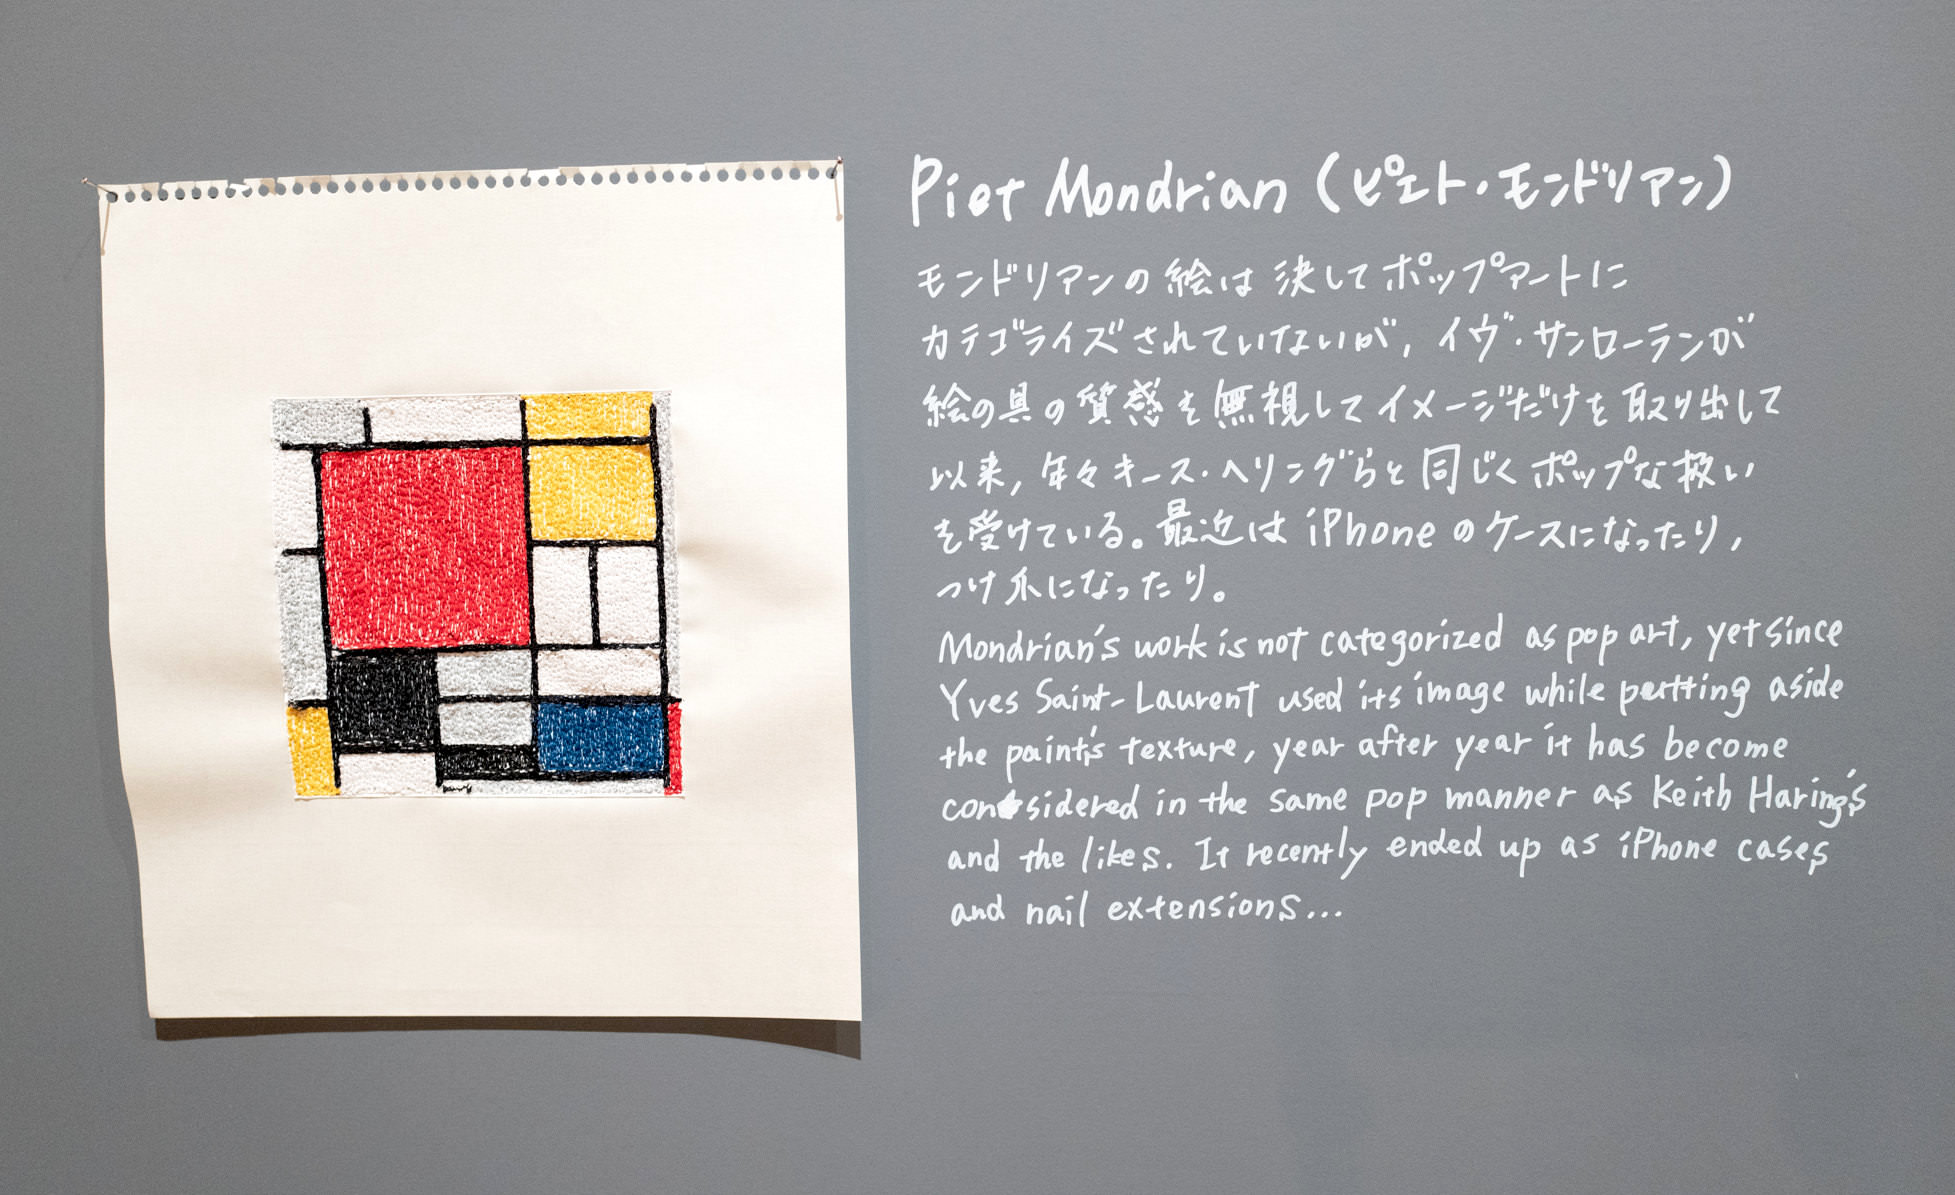 Piet Mondrian (ピエト・モンドリアン)
モンドリアンの絵は決してポップアートに
カテゴライズされていないが, イヴ・サンローランが
絵の具の質感を無視してイメージだけを取り出して
以来, 年々キース・ヘリングらと同じくポップな扱い
を受けている。最近はiPhoneのケースになったり,
つけ爪になったり。
Mondrian's work is not categorized as pop art, yet since
Yves Saint-Laurent used its image while putting aside
the paint's texture, year after year it has become
considered in the same pop manner as Keith Haring's
and the likes. It recently ended up as iPhone cases
and nail extensions...